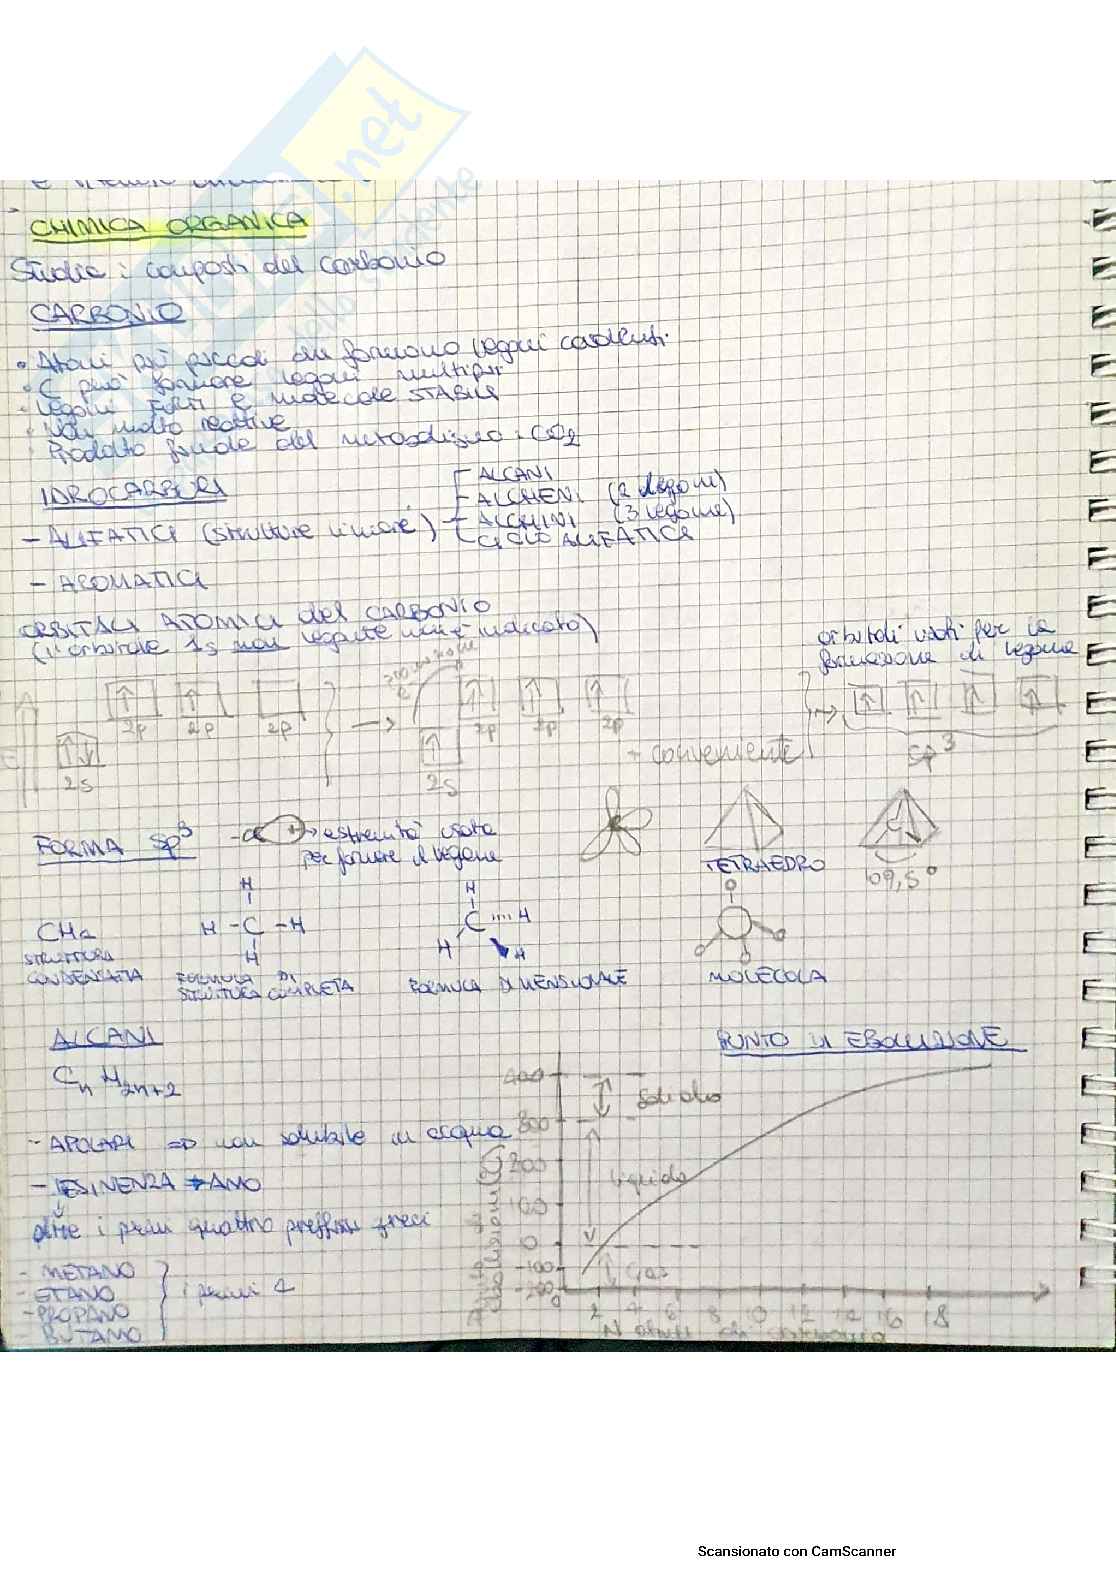 CHIMICA ORGANICA
Studia i composti del carbonio
CARBONIO
• Atomi più piccoli che formano legami covalenti
• C può formare legami multipli
• Legami FORTI e molecole STABILI
• Non molto reattive
• Prodotto finale del metabolismo: CO2
IDROCARBURI
- ALIFATICI (strutture lineare)
ALCANI
ALCHENI (2 legami)
ALCHINI (3 legame)
CICLO ALIFATICI
- AROMATICI
ORBITALI ATOMICI del CARBONIO
(l'orbitale 1s non indicato)
orbitali usati per la
formazione di legame
2p 2p 2p
2s
2p 2p 2p
2s
+ conveniente
sp3
FORMA Sp3
estremità usata
per formare il legame
TETRAEDRO
C
109,5°
CH4
STRUTTURA
CONDENSATA
H
H - C - H
H
FORMULA DI
STRUTTURA COMPLETA
H
C H
H H
FORMULA DIMENSIONALE
MOLECOLA
ALCANI
CnH2n+2
- APOLARI => non solubile in acqua
- DESINENZA → ANO
oltre i primi quattro prefissi greci
- METANO
- ETANO
- PROPANO
- BUTANO
i primi 4
PUNTO DI EBOLLIZIONE
400
300
200
100
0
-100
-200
Solido
Liquido
Gas
0 2 4 6 8 10 12 14 16 18
N atomi di carbonio
.net
dello studente
Scansionato con CamScanner